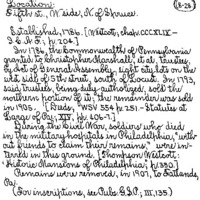 Location: 18-26
Fifth st., W side, N of Spruce.
Established, 1786. [Westcott, chap. CCCXLIX-
p. 204.]
In 1786, the Commonwealth of Pennsylvania
granted to Christopher Marshall, et al, Trustees,
by Act of General Assembly, eight city lots on the
west side of 5th street, south of Locust. In 1793,
said trustees, being duly authorized, sold the
northern portion of it; the remainder was sold
in 1905. [Deeds, WSV 354 p 231. - Statutes at
Large of Pa., XIV, pp. 406-7.]
During the Civil War, soldiers who died
in the military hospitals in Philadelphia, "with-
out friends to claim their remains," were in-
terred in this ground. [Thompson Westcott,
"Historic Mansions of Philadelphia," p. 390]
Remains were removed, in 1907, to
Pa.
(For inscriptions, see Pubs. G.S.P., III, 135)